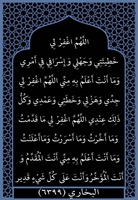 اللَّهُمَّ اغْفِرْ لِي
خَطِيئَتِي وَجَهْلِي وَإِسْرَافِي فِي أَمْرِي
وَمَا أَنْتَ أَعْلَمُ بِهِ مِنِّي اللَّهُمَّ اغْفِرْ لِي
جِدِّي وَهَزْلِي وَخَطَئِي وَعَمْدِي وَكُلُّ
ذَلِكَ عِنْدِي اللَّهُمَّ اغْفِرْ لِي مَا قَدَّمْتُ
وَمَا أَخَّرْتُ وَمَا أَسْرَرْتُ وَمَا أَعْلَنْتُ
وَمَا أَنْتَ أَعْلَمُ بِهِ مِنِّي أَنْتَ الْمُقَدِّمُ وَ
أَنْتَ الْمُؤَخِّرُ وَأَنْتَ عَلَى كُلِّ شَيْءٍ قَدِير
البخاري (٦٣٩٩)